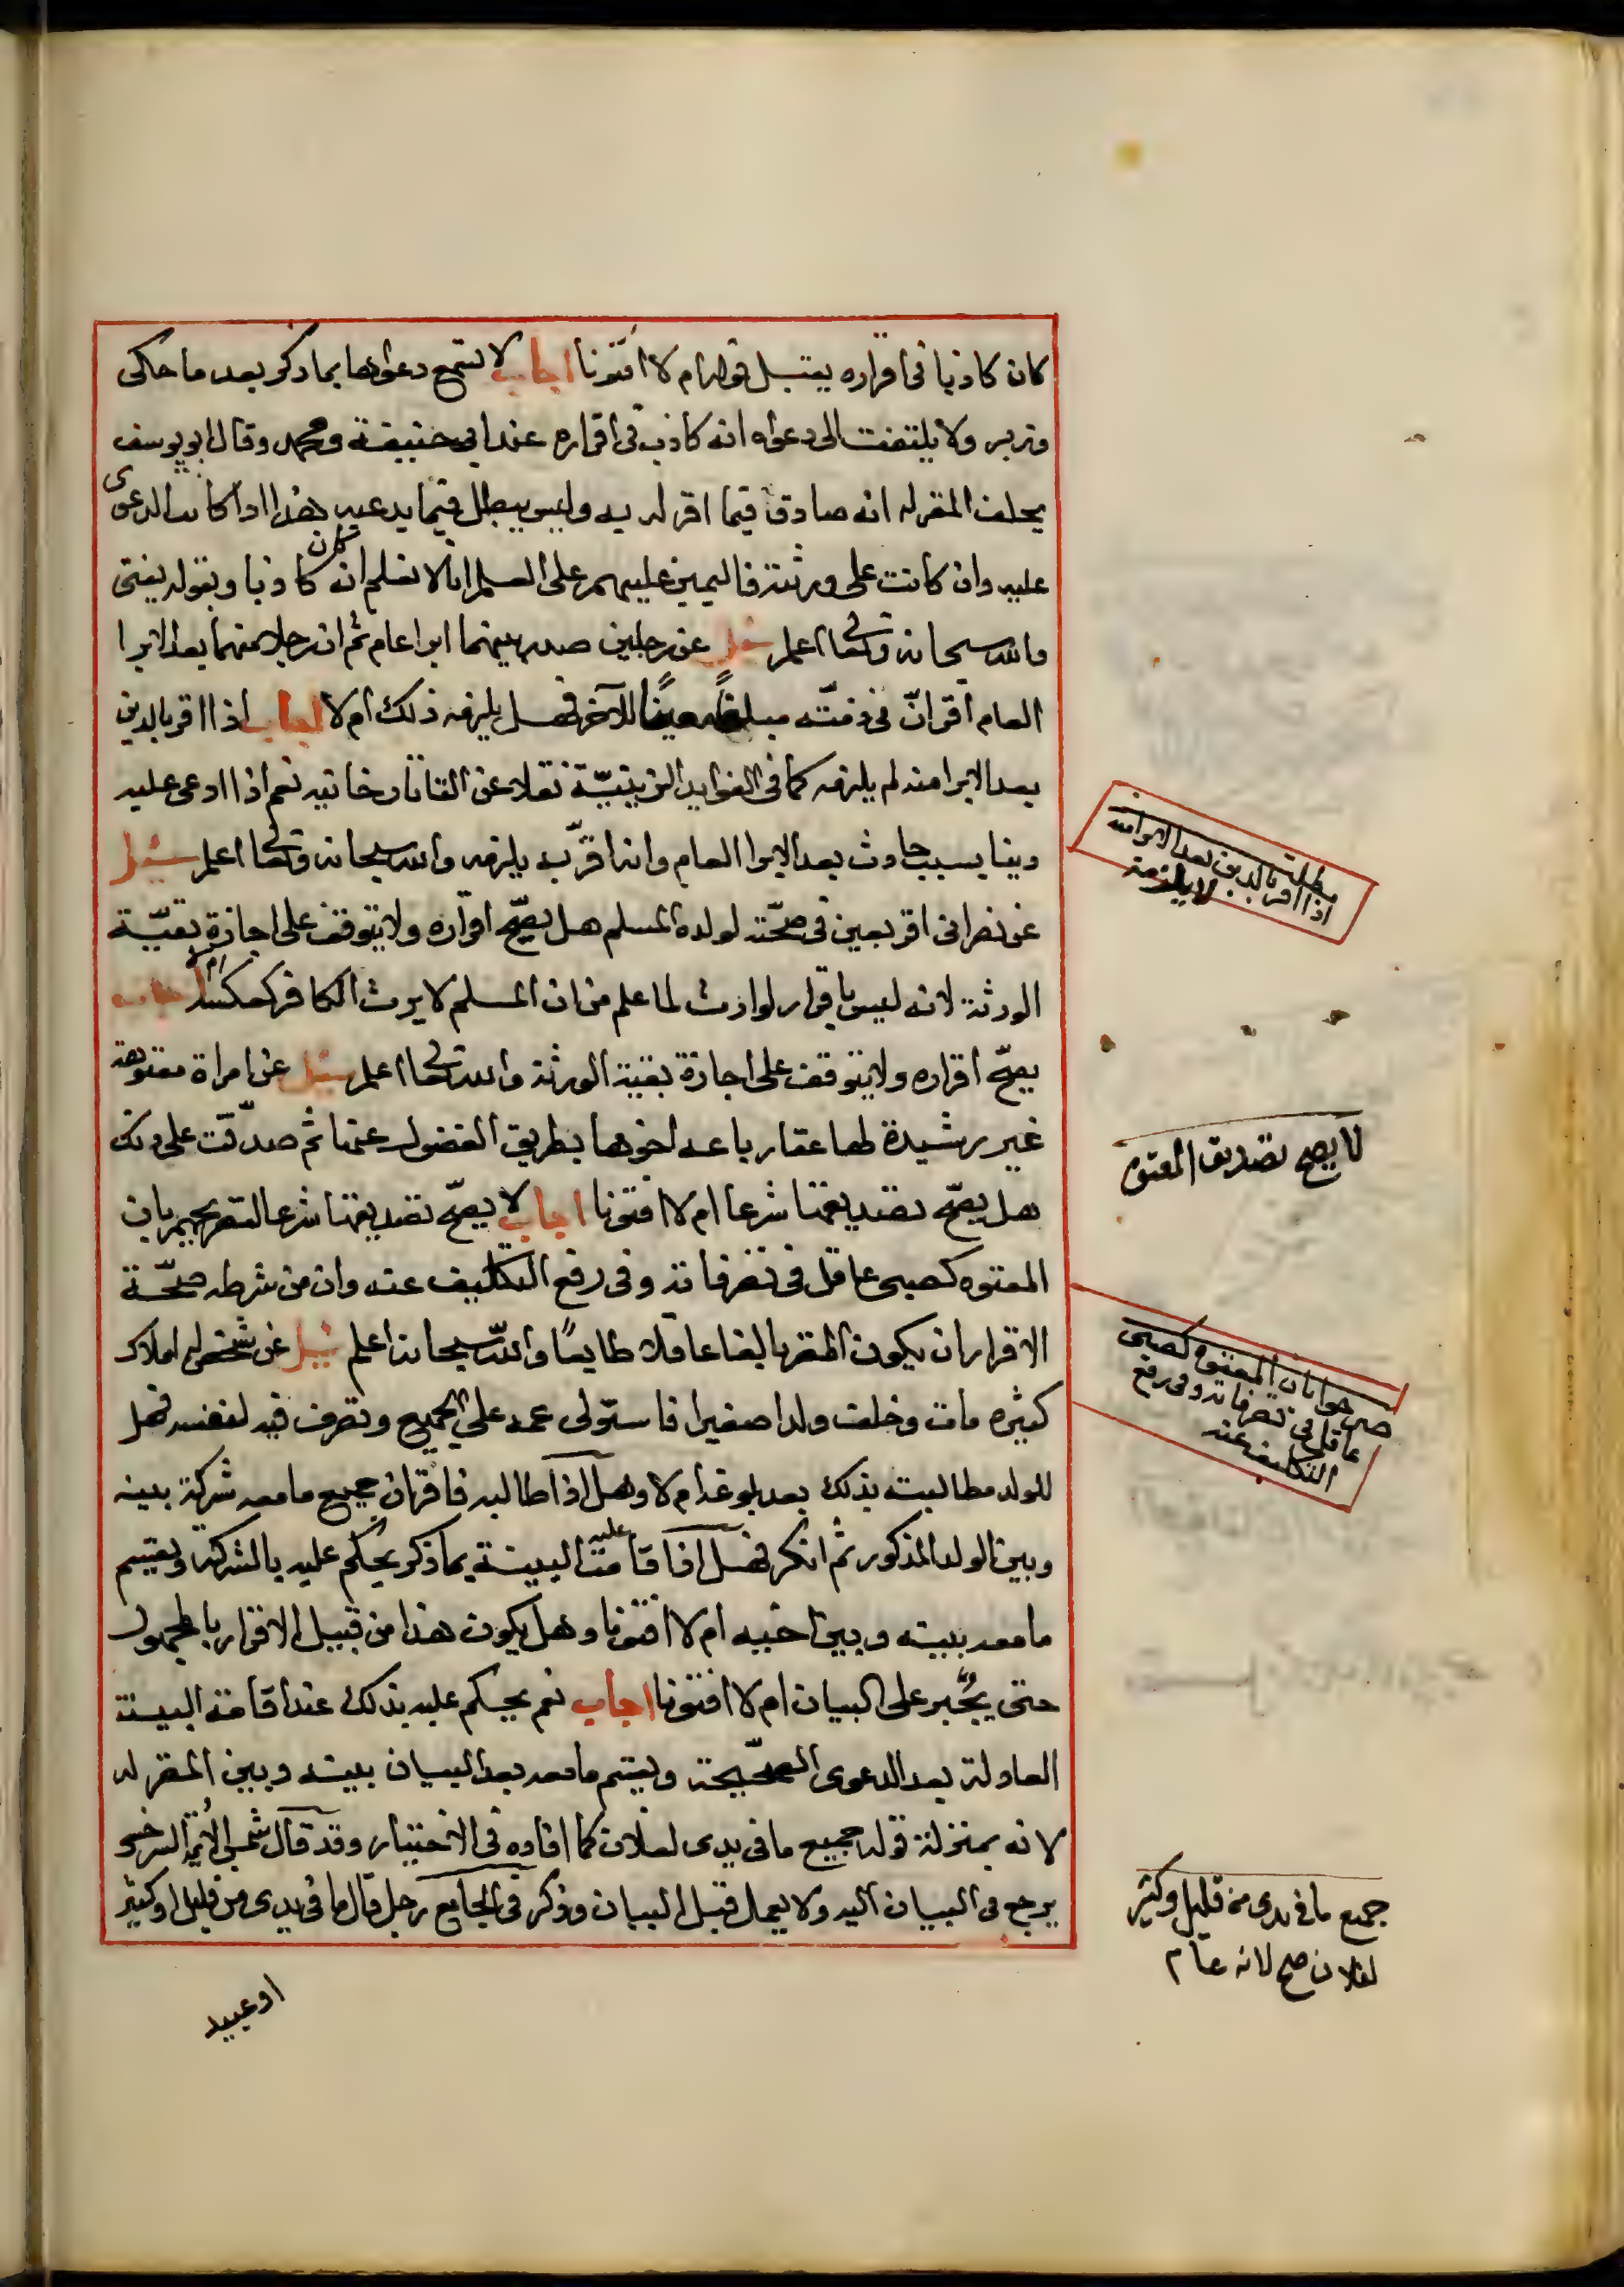 كان كاذبا فى اقراره يقبل قوله ام لا افتونا اجاب لا تسمع دعواها بما ذكر بعد ما حكى
وزبر ولا يلتفت الى دعواه انه كاذب فى اقراره عند ابى حنيفة ومحمد وقال ابو يوسف
يحلف المقر له انه صادق فيما اقر له به وليس بمبطل فيما يدعيه هذا اذا كانت الدعوى
عليه وان كانت على ورثته فاليمين عليهم على العلم انا لا نعلم انه كان كاذبا وبقوله يفتى
والله سبحانه وتعالى اعلم سئل عن رجلين صدر بينهما ابرا عام ثم ان رجلا منهما بعد الابرا
العام اقر انّ فى ذمّته مبلغا معينًا للآخر فهل يلزمه ذلك ام لا اجاب اذا اقر بالدين
بعد الابرا منه لم يلزمه كما فى الفوايد الزينيّة نقلا عن التاتارخانيه نعم اذا ادعى عليه
دينا بسبب حادث بعد الابرا العام وانه اقرّ به يلزمه والله سبحانه وتعالى اعلم سئيل
عن نصرانى اقر بعين فى صحّته لولده المسلم هل يصحّ اقراره ولا يتوقف على اجازة بقيّة
الورثة لانه ليس باقرار لوارث لما علم من ان المسلم لا يرث الكافر كعكسه ام لا اجاب
يصحّ اقراره ولا يتوقف على اجازة بقية الورثة والله تعالى اعلم سئيل عن امراة معتوهة
غير رشيدة لها عقار باعه اخوها بطريق الفضول عنها ثم صدّقت على ذلك
هل يصحّ تصديقها شرعا ام لا افتونا اجاب لا يصحّ تصديقها شرعا لتصريحهم بان
المعتوه كصبى عاقل فى تصرفاته وفى رفع التكليف عنه وان من شرطه صحّة
الاقرار ان يكون المقر بالغا عاقلا طايعًا والله سبحانه اعلم سئيل عن شخص له املاك
كثيره مات وخلف ولدا صغيرا فاستولى عمه على الجميع وتصرف فيه لنفسه فهل
للولد مطالبته بذلك بعد بلوغه ام لا وهل اذا طالبه فاقر ان جميع ما معه شركة بينه
وبين الولد المذكور ثم انكر فهل اذا قامت عليه البينة بما ذكر يحكم عليه بالشركة ويقسم
ما معه بينه وبين اخيه ام لا افتونا وهل يكون هذا من قبيل الاقرار بالمجهول
حتى يجُبر على البيان ام لا افتونا اجاب نعم يحكم عليه بذلك عند اقامة البينة
العادلة بعد الدعوى الصحّيحة ويقسم ما معه بعد البيان بينه وبين المقر له
لانه بمنزلة قوله جميع ما فى يدى لفلان كما افاده فى الاختيار وقد قال شمس الائمة السرخسى
يرجع فى البيان اليه ولا يعمل قبل البيان وذكر فى الجامع رجل قال ما فى يدى من قليل او كثير
او عبيد
مطلب
اذا اقر بالدين بعد الابرا منه
لا يلزمه
لا يصح تصديق المعتوه
صرحوا بان المعتوه كصبى
عاقل فى تصرفاته وفى رفع
التكليف عنه
جميع ما فى يدى من قليل وكثير
لفلان صح لانه عام